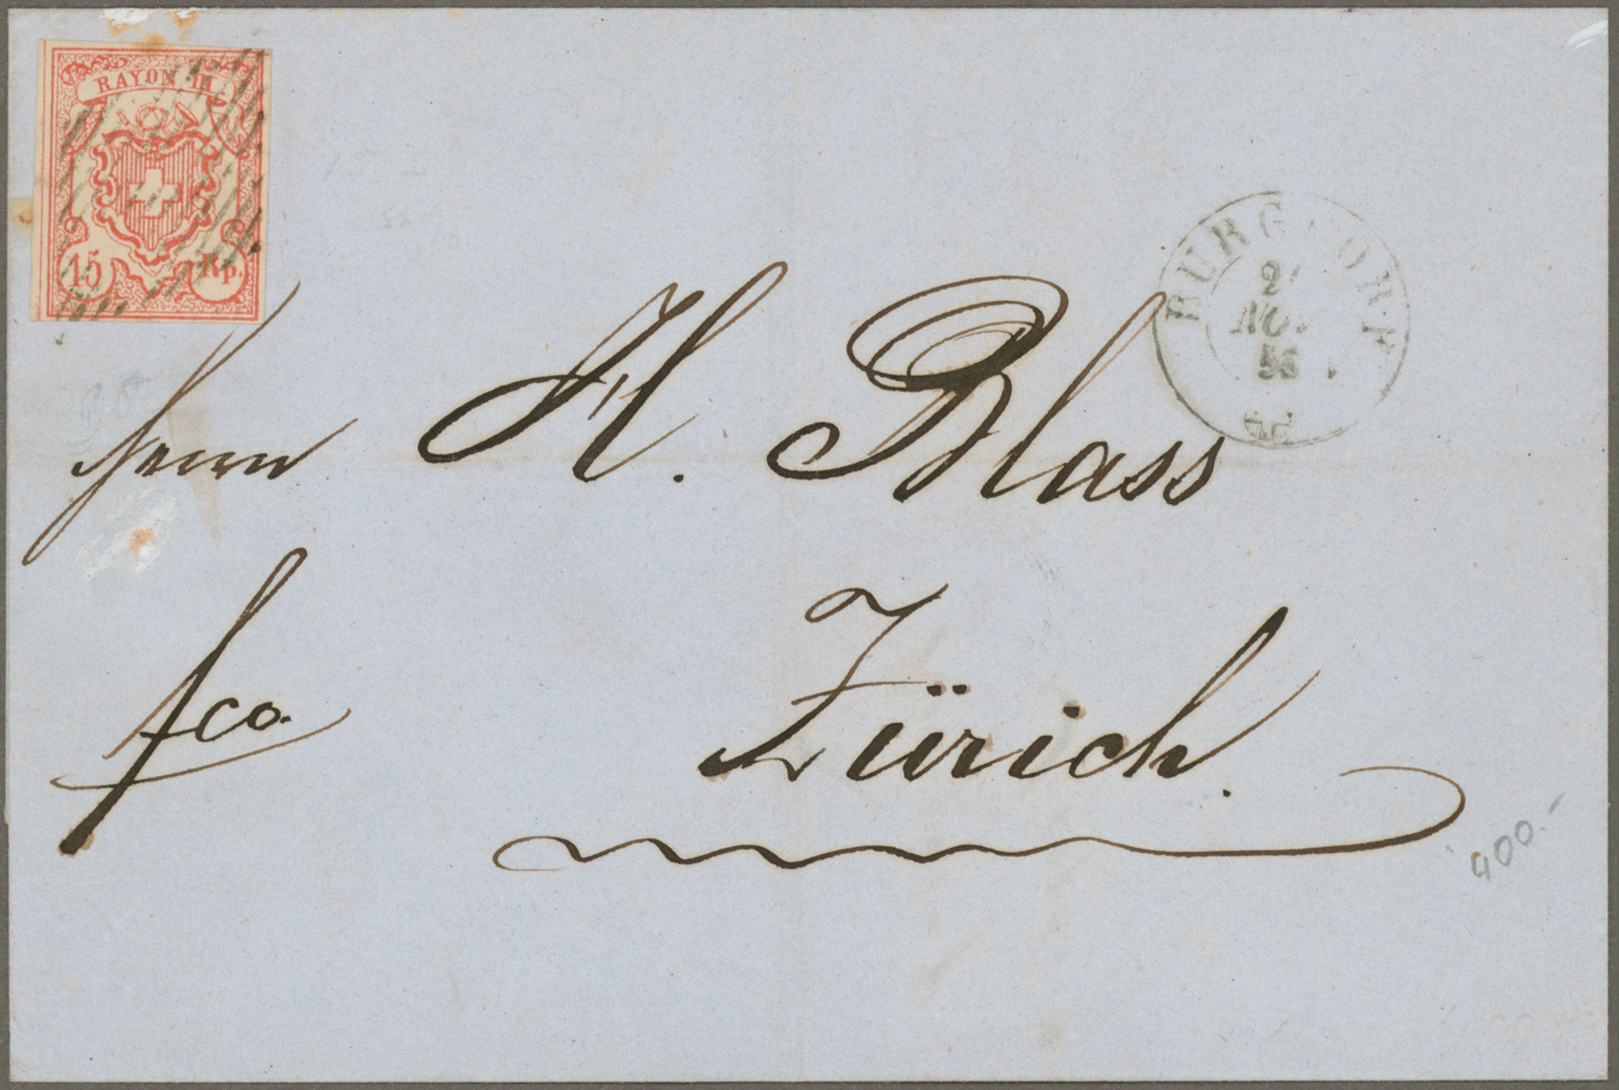 RAYON III.
15 Rp.
BURGDORF
2
NOV
Herrn H. Blass
fco.
Zürich.
400.-